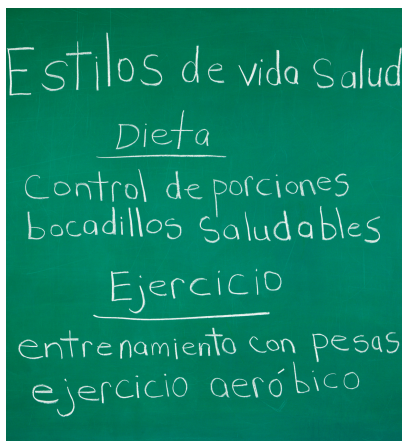 Estilos de vida Salud
Dieta
Control de porciones
bocadillos Saludables
Ejercicio
entrenamiento con pesas
ejercicio aeróbico